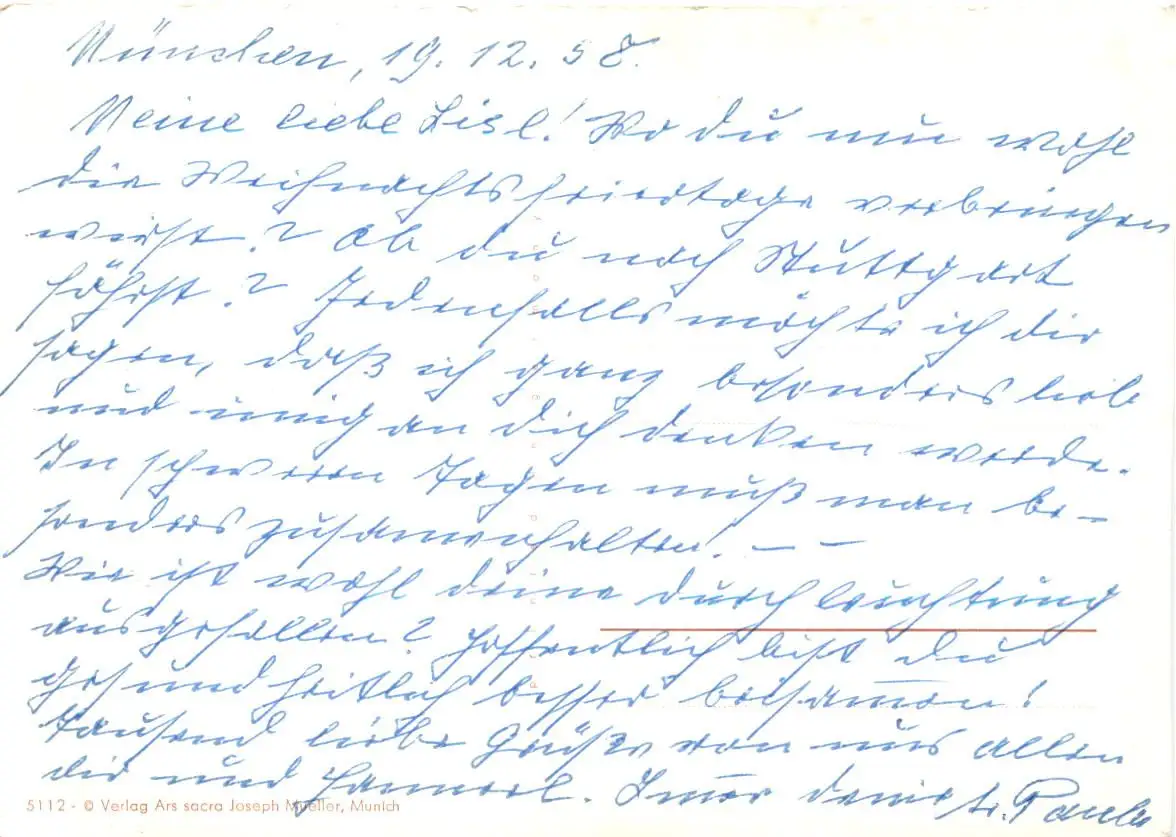 München, 19. 12. 58.
Meine liebe Lisl! Wo du nun wohl
die Weihnachtsfeiertage verbringen
wirst? Ob du nach Stuttgart
fährst? Jedenfalls möchte ich dir
sagen, daß ich ganz besonders lieb
und innig an dich denken werde.
In schweren Tagen muß man be-
sonders zusamenhalten. — —
Wie ist wohl deine Durchleuchtung
ausgefallen? Hoffentlich bist du
gesundheitlich besser beisamen!
Tausend liebe Grüße von uns allen
dir und . Imer deine tr. Paula
5112 - © Verlag Ars sacra Joseph Mueller, Munich